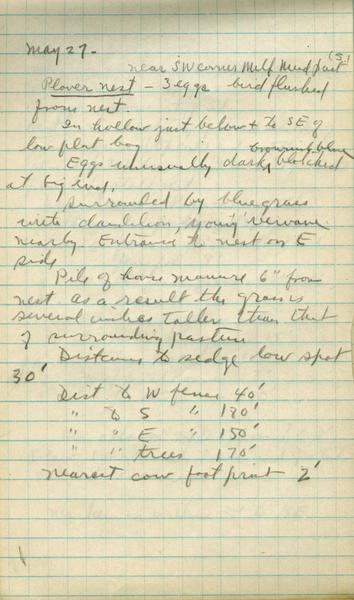 May 27 -
near SW corner Mulf Mud past (S!)
Plover nest - 3 eggs bird flushed
from nest.
In hollow just below & to SE of
low flat bog
Eggs unusually dark, brownish blue blotched
at big end.
Surrounded by bluegrass
with dandelion, young vervain
nearby Entrance to nest on E
side
Pile of horse manure 6" from
nest as a result the grass is
several inches taller than that
of surrounding pasture
Distance to sedge low spot
30'
Dist to W fence 40'
" to S " 180'
" " E " 150'
" " trees 170'
nearest cow foot print 2'